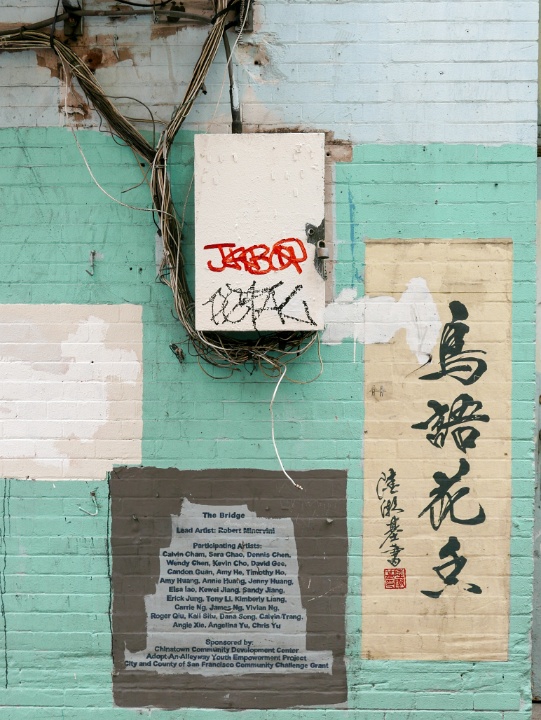 鳥語花香
The Bridge
Lead Artist: Robert Minervini
Participating Artists:
Calvin Cham, Sara Chao, Dennis Chen,
Wendy Chen, Kevin Cho, David Goo,
Candon Guan, Amy He, Timothy Ho,
Amy Huang, Annie Huang, Jenny Huang,
Elsa Iao, Kewei Jiang, Sandy Jiang,
Erick Jung, Tony Li, Kimberly Liang,
Carrie Ng, James Ng, Vivian Ng,
Roger Qiu, Kaii Situ, Dana Song, Calvin Trang,
Angie Xie, Angelina Yu, Chris Yu
Sponsored by:
Chinatown Community Development Center
Adopt-An-Alleyway Youth Empowerment Project
City and County of San Francisco Community Challenge Grant